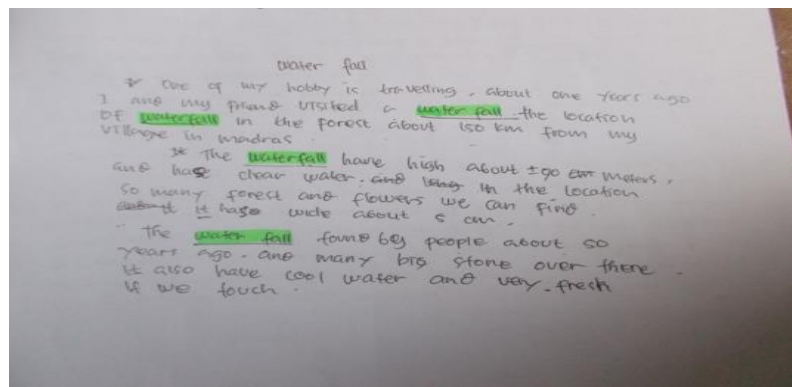 water fall
One of my hobby is travelling. about one years ago
I and my friend visited a water fall. the location
OF waterfall in the forest about 150 km from my
village in madras.
The waterfall have high about ±90 meters,
and has clear water. in the location
so many forest and flowers we can find.
it has wide about 5 cm.
The water fall found by people about 50
years ago. and many big stone over there.
it also have cool water and very fresh
if we touch.